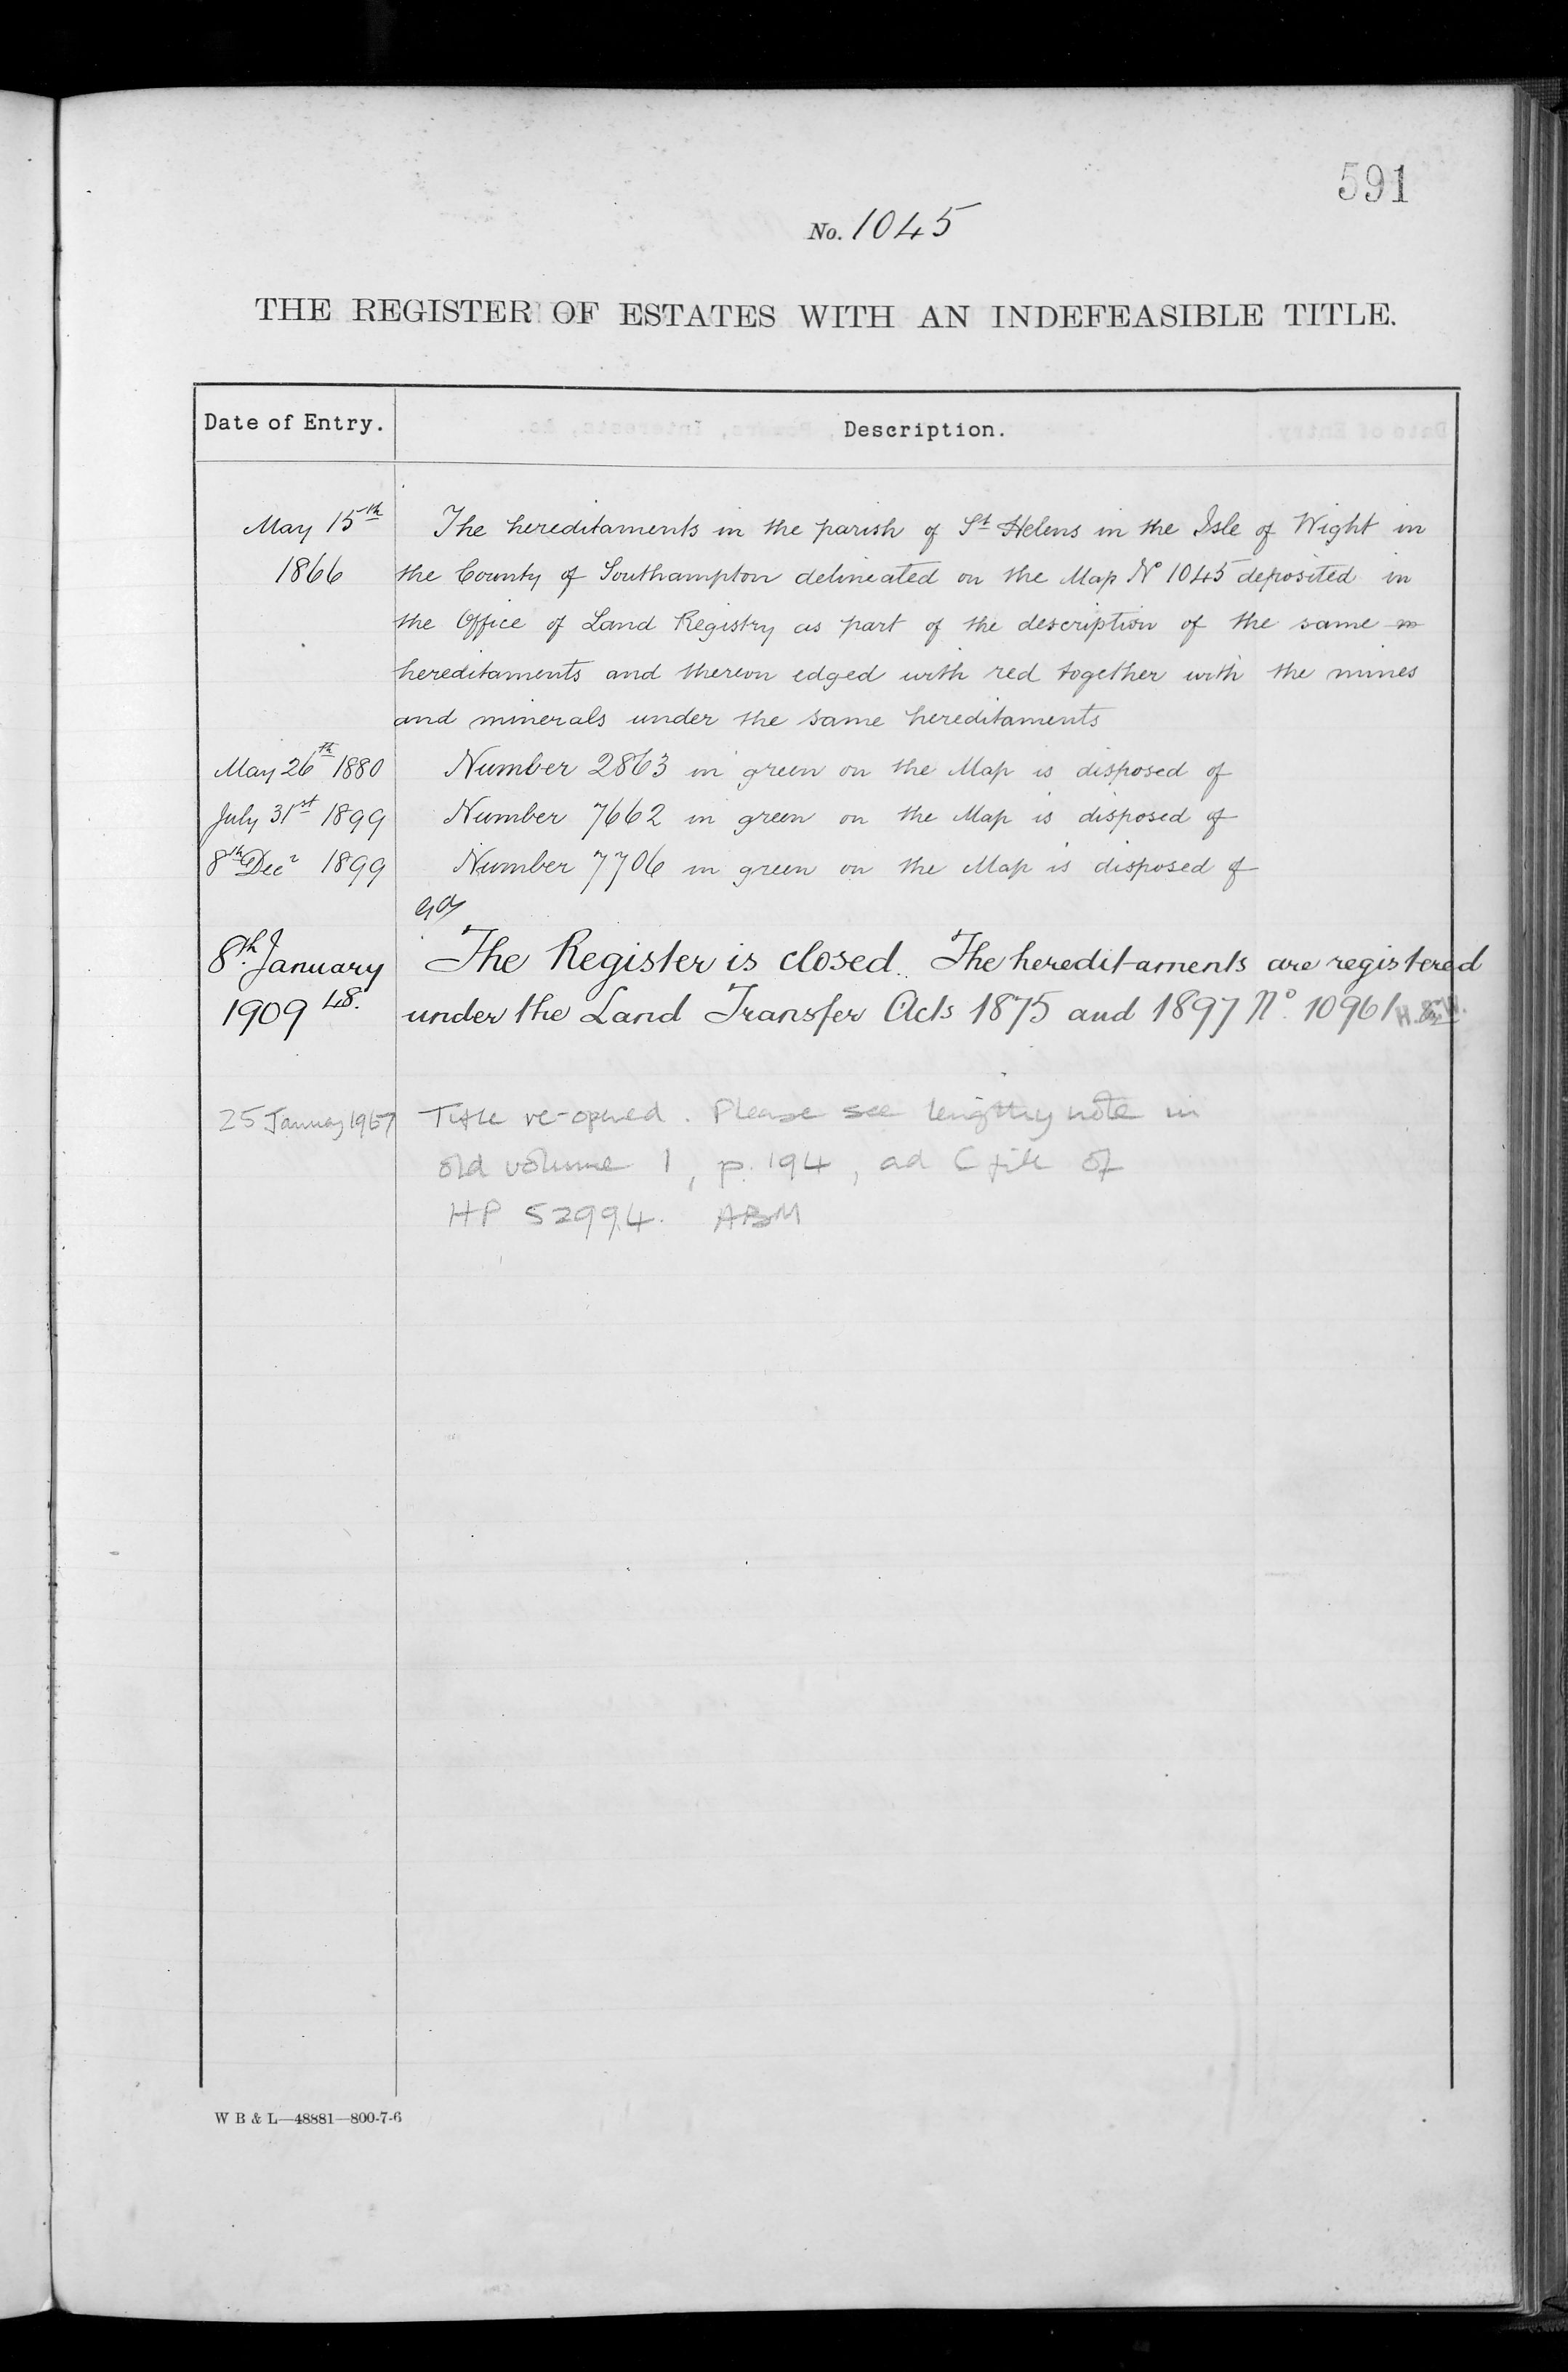 591
No. 1045
THE REGISTER OF ESTATES WITH AN INDEFEASIBLE TITLE.
Date of Entry. Description.
May 15th The hereditaments in the parish of St Helens in the Isle of Wight in
1866 the County of Southampton delineated on the Map No 1045 deposited in
the Office of Land Registry as part of the description of the same
hereditaments and thereon edged with red together with the mines
and minerals under the same hereditaments
May 26th 1880 Number 2863 in green on the Map is disposed of
July 31st 1899 Number 7662 in green on the Map is disposed of
8th Decr 1899 Number 7706 in green on the Map is disposed of
8th January The Register is closed. The hereditaments are registered
1909 under the Land Transfer Acts 1875 and 1897 No. 10961
25 January Title re-opened. Please see lengthy note in
old volume 1, p. 194, ad C file of
HP 52994. ABM
W B & L—48881—800-7-6